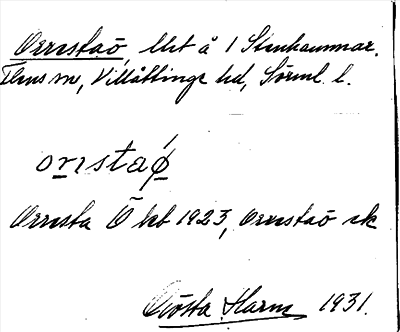 Orrestaö, lht å 1 Stenhammar.
Flens sn, Villåttinge hd, Sörml. l.
orrstaö
Orresta Ö kb 1923, Orrestaö ek
Gösta Harm 1931.